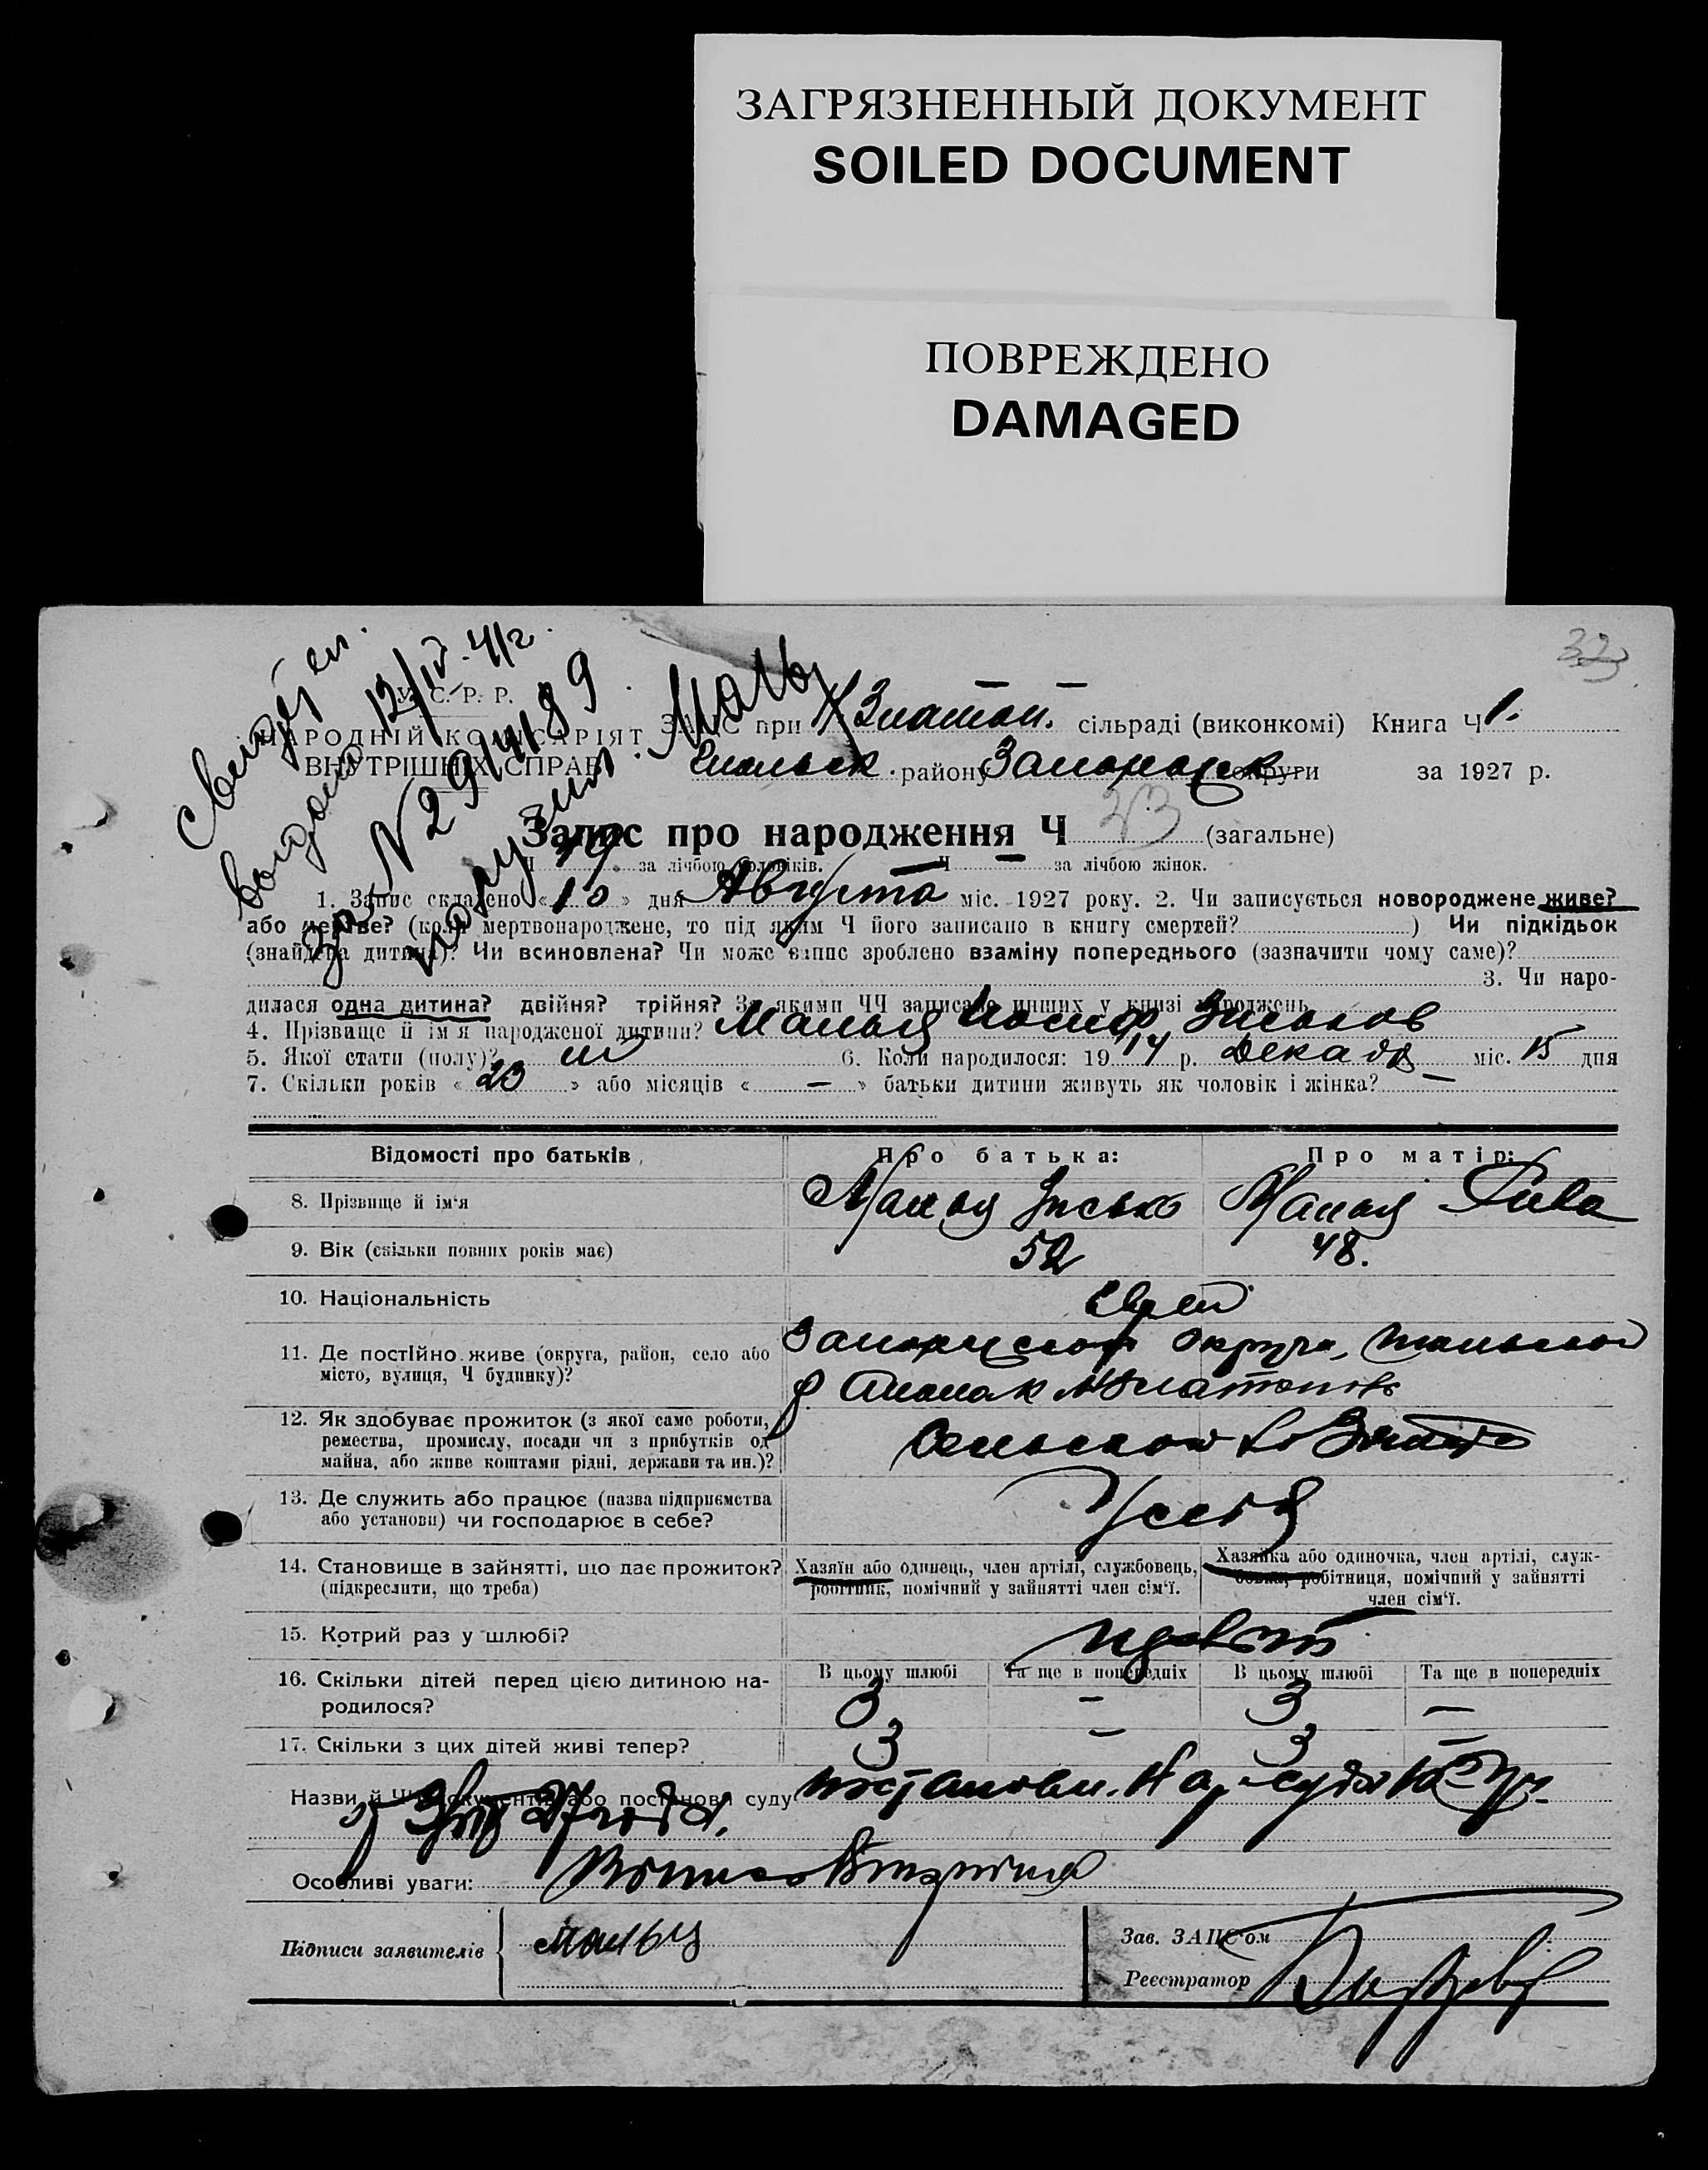 ЗАГРЯЗНЕННЫЙ ДОКУМЕНТ
SOILED DOCUMENT
ПОВРЕЖДЕНО
DAMAGED
32
Свидет.
выдано 12/IV-41г.
за N 2914189
У. С. Р. Р.
НАРОДНІЙ КОМІСАРІЯТ
ВНУТРІШНІХ СПРАВ
ЗАГС при Н Златоп. сільраді (виконкомі) Книга Ч 1.
району Запорожск округи за 1927 р.
Запис про народження Ч 23 (загальне)
Ч 19 за лічбою чоловіків. Ч — за лічбою жінок.
1. Запис складено «10» дня Августа міс. 1927 року. 2. Чи записується новороджене живе?
або мертве? (коли мертвонароджене, то під яким Ч його записано в книгу смертей? ) Чи підкідьок
(знайдена дитина)? Чи всиновлена? Чи може запис зроблено взаміну попереднього (зазначити чому саме)?
3. Чи наро-
дилася одна дитина? двійня? трійня? За якими ЧЧ записано инших у книзі народжень
4. Прізвище й ім'я народженої дитини? Малый Иосиф Зиськов
5. Якої стати (полу)? м 6. Коли народилося: 1914 р. Декабр міс. 15 дня
7. Скільки років «23» або місяців « — » батьки дитини живуть як чоловік і жінка? —
Відомості про батьків Про батька: Про матір:
8. Прізвище й ім'я Малый Зиська Малый Рива
9. Вік (скільки повних років має) 52 48.
10. Національність Еврей
11. Де постійно живе (округа, район, село або
місто, вулиця, Ч будинку)?
12. Як здобуває прожиток (з якої саме роботи,
ремества, промислу, посади чи з прибутків од
майна, або живе коштами рідні, держави та ин.)?
13. Де служить або працює (назва підприємства
або установи) чи господарює в себе?
14. Становище в зайнятті, що дає прожиток?
(підкреслити, що треба)
Хазяїн або одинець, член артілі, службовець,
робітник, помічний у зайнятті член сім'ї.
Хазяйка або одиночка, член артілі, служ-
бовка, робітниця, помічний у зайнятті
член сім'ї.
15. Котрий раз у шлюбі? первый
В цьому шлюбі Та ще в попередніх В цьому шлюбі Та ще в попередніх
16. Скільки дітей перед цією дитиною на-
родилося? 3 — 3 —
17. Скільки з цих дітей живі тепер? 3 — 3 —
Назви й ЧЧ документів або постанови суду постановл. Нар-суда
Особливі уваги:
Підписи заявителів
Зав. ЗАГС'ом
Реєстратор